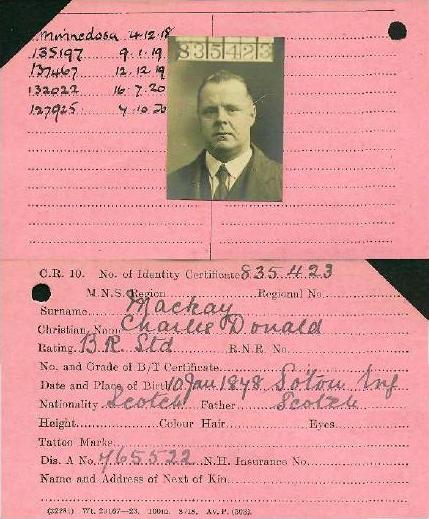 Minnedosa 4.12.18
135197 9.1.19
137467 12.12.19
132022 16.7.20
127925 7.10.20
835423
C.R. 10. No. of Identity Certificate 835423
M.N.S. Region Regional No.
Surname Mackay
Christian Name Charlie Donald
Rating B R Std R.N.R. No.
No. and Grade of B/T Certificate
Date and Place of Birth 10 Jan 1878 Soton Eng
Nationality Scotch Father Scotch
Height Colour Hair Eyes
Tattoo Marks
Dis. A No. 765522 N.H. Insurance No.
Name and Address of Next of Kin
(32281) Wt. 29167—23. 100m. 8/18. Av. P. (303).